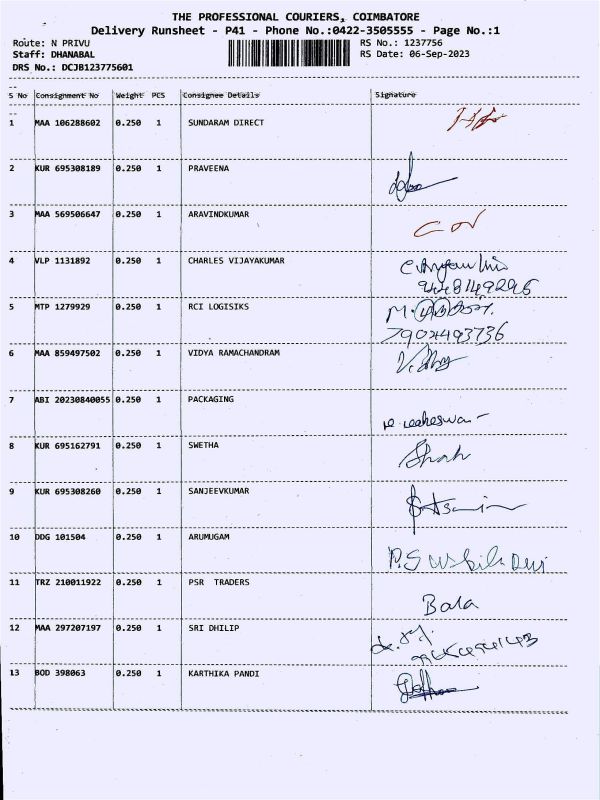 THE PROFESSIONAL COURIERS, COIMBATORE
Delivery Runsheet - P41 - Phone No.:0422-3505555 - Page No.:1
Route: N PRIVU RS No.: 1237756
Staff: DHANABAL RS Date: 06-Sep-2023
DRS No.: DCJB123775601
S No Consignment No Weight PCS Consignee Details Signature
1 MAA 106288602 0.250 1 SUNDARAM DIRECT
2 KUR 695308189 0.250 1 PRAVEENA
3 MAA 569506647 0.250 1 ARAVINDKUMAR
4 VLP 1131892 0.250 1 CHARLES VIJAYAKUMAR
5 MTP 1279929 0.250 1 RCI LOGISIKS
7904493736
6 MAA 859497502 0.250 1 VIDYA RAMACHANDRAM
7 ABI 20230840055 0.250 1 PACKAGING
8 KUR 695162791 0.250 1 SWETHA
9 KUR 695308260 0.250 1 SANJEEVKUMAR
10 DDG 101504 0.250 1 ARUMUGAM
11 TRZ 210011922 0.250 1 PSR TRADERS
Bala
12 MAA 297207197 0.250 1 SRI DHILIP
13 BOD 398063 0.250 1 KARTHIKA PANDI